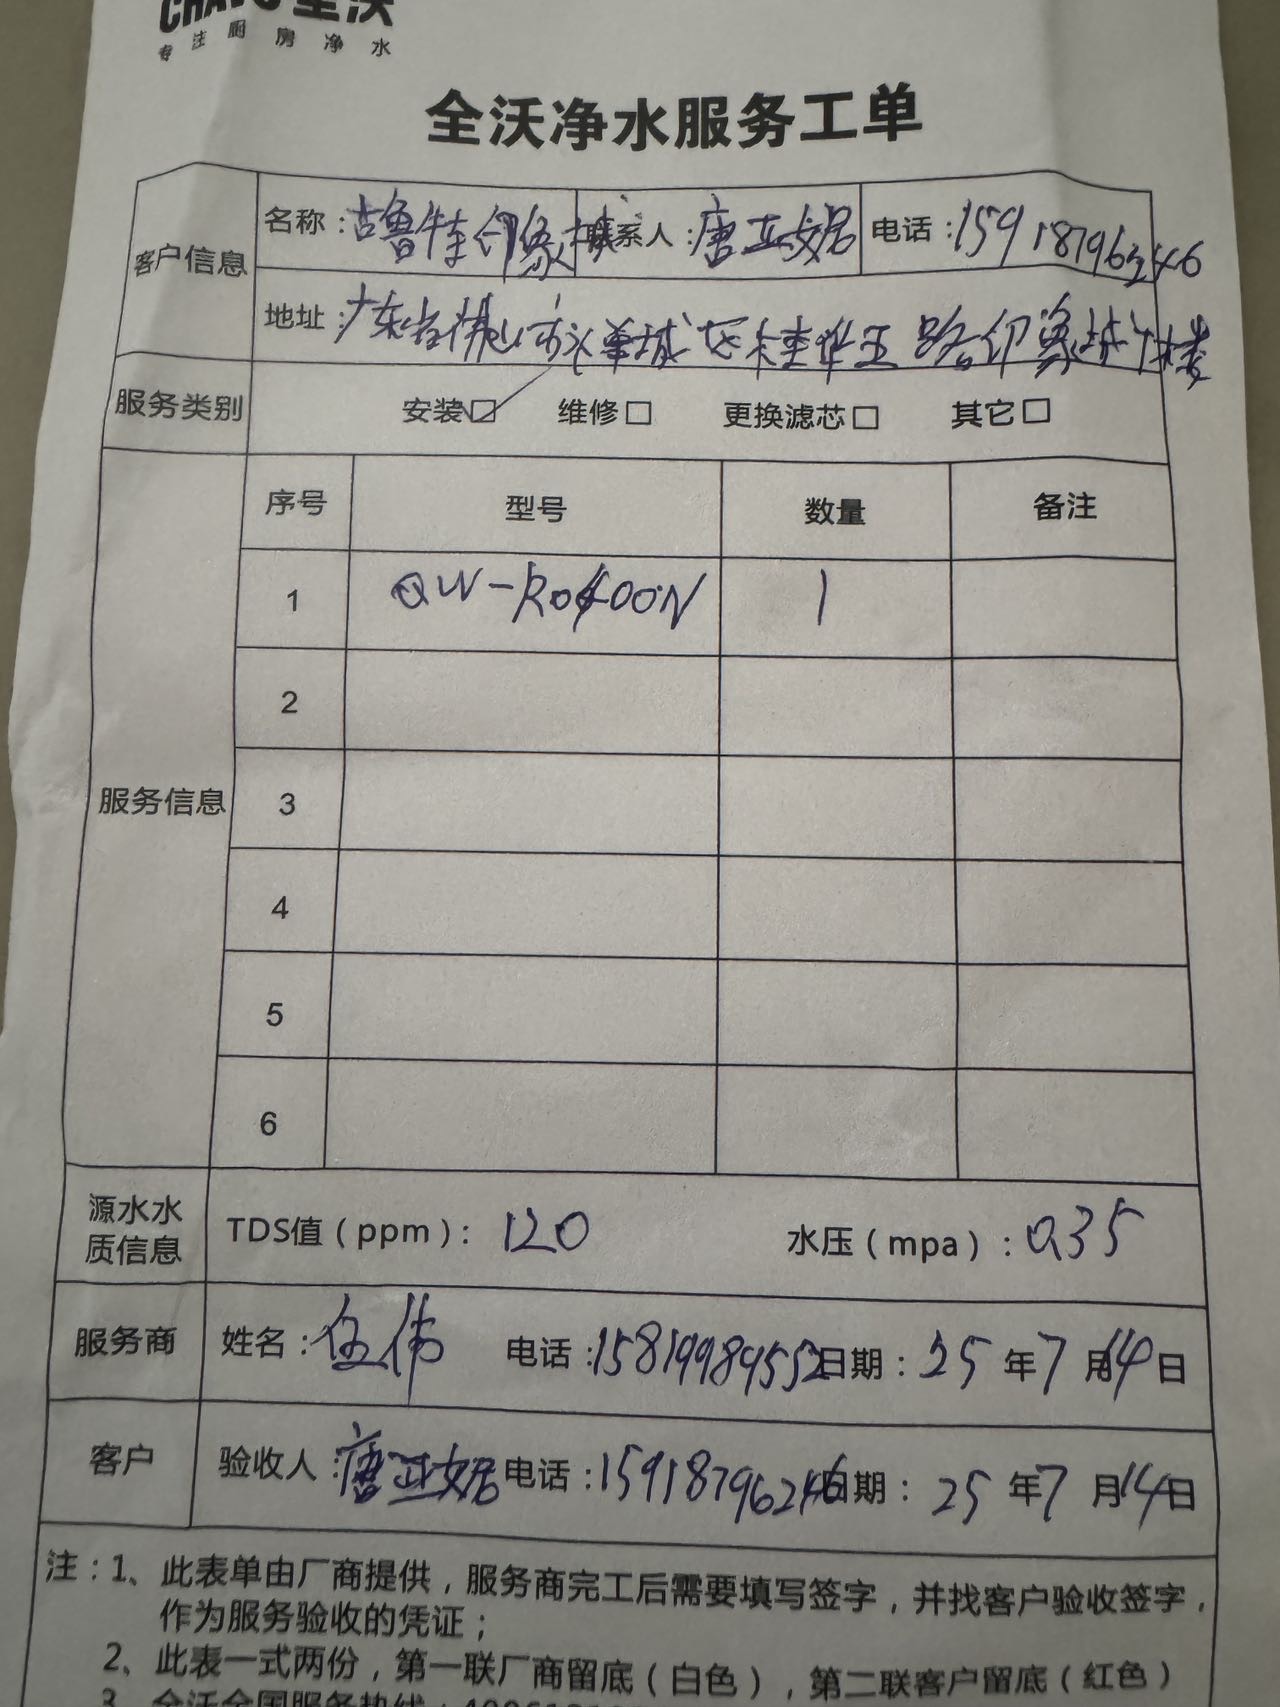 专注厨房净水
全沃净水服务工单
客户信息
名称：古鲁特印象城 联系人：唐亚妮 电话：15918796246
地址：广东省佛山市 城区桂华五路印象城1楼
服务类别 安装☑ 维修□ 更换滤芯□ 其它□
服务信息
序号 型号 数量 备注
1 QW-RO400N 1
2
3
4
5
6
源水水质信息 TDS值（ppm）：120 水压（mpa）：0.35
服务商 姓名：伍伟 电话：15819989552 日期：25年7月14日
客户 验收人：唐亚妮 电话：15918796246 日期：25年7月14日
注：1、此表单由厂商提供，服务商完工后需要填写签字，并找客户验收签字，
作为服务验收的凭证；
2、此表一式两份，第一联厂商留底（白色），第二联客户留底（红色）
3、全沃全国服务热线：